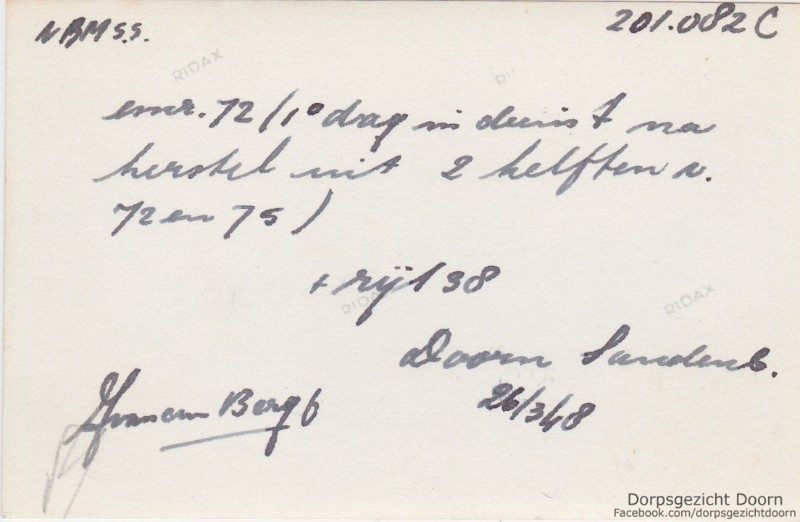 NBM s.s.
201.082 C
RIDAX
emr. 72 (1º dag in dienst na
herstel uit 2 helften v.
72 en 75)
+ rijt 38
RIDAX
RIDAX
Doorn Sandenb.
26/3 48
van den Bergh
Dorpsgezicht Doorn
Facebook.com/dorpsgezichtdoorn